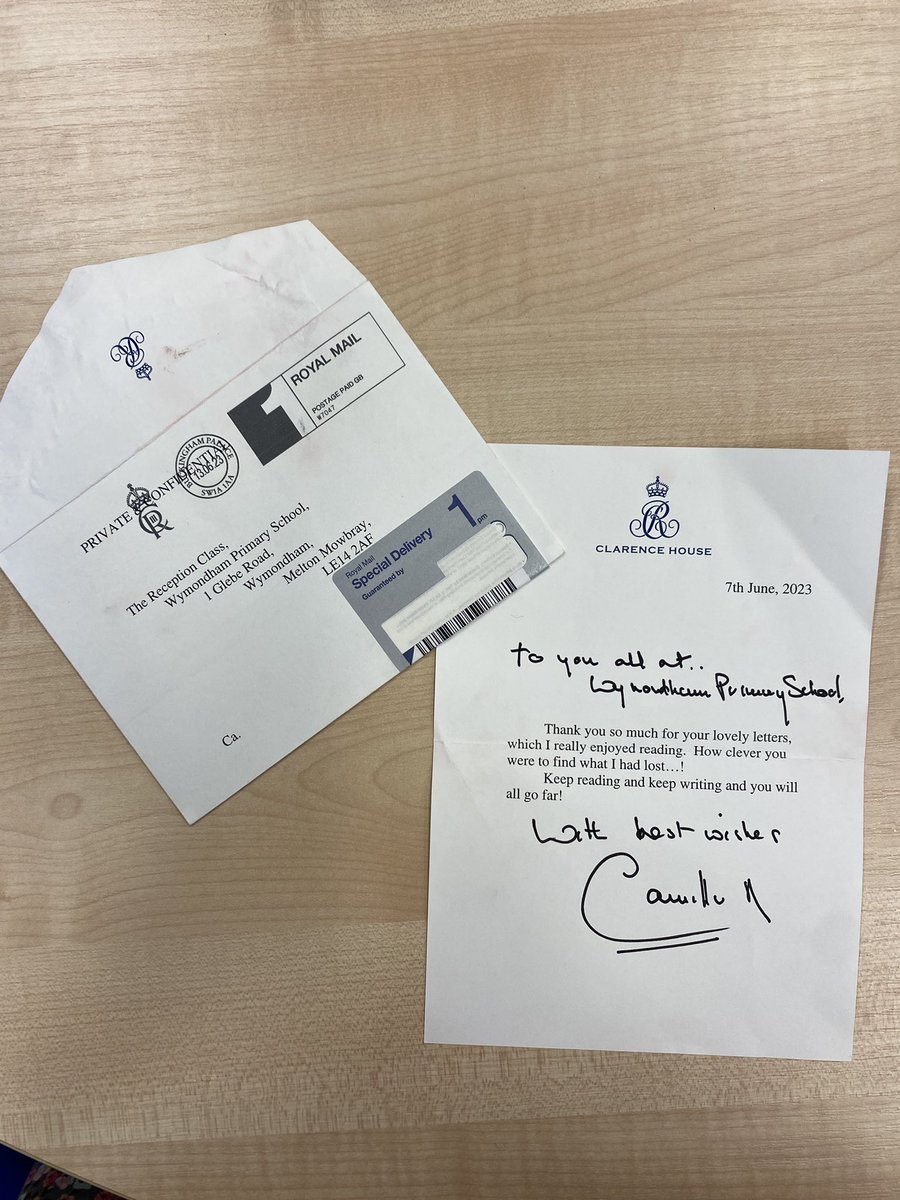 ROYAL MAIL
POSTAGE PAID GB
W7047
BUCKINGHAM PALACE
13.06.23
SW1A 1AA
PRIVATE & CONFIDENTIAL
The Reception Class,
Wymondham Primary School,
1 Glebe Road,
Wymondham,
Melton Mowbray,
LE14 2AF
Royal Mail
Special Delivery
Guaranteed by
1 pm
Ca.
CLARENCE HOUSE
7th June, 2023
To you all at..
Wymondham Primary School,
Thank you so much for your lovely letters,
which I really enjoyed reading. How clever you
were to find what I had lost…!
Keep reading and keep writing and you will
all go far!
With best wishes
Camilla R